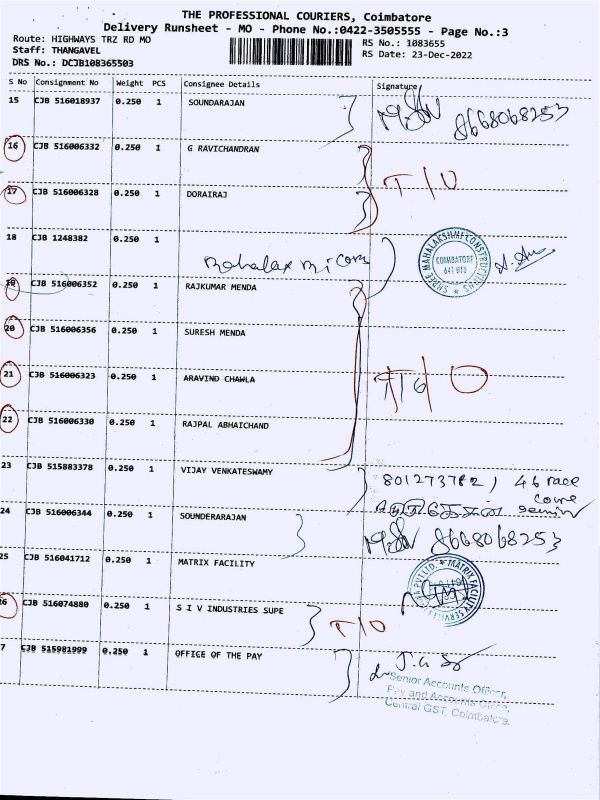 THE PROFESSIONAL COURIERS, Coimbatore
Delivery Runsheet - MO - Phone No.:0422-3505555 - Page No.:3
Route: HIGHWAYS TRZ RD MO
RS No.: 1083655
Staff: THANGAVEL
RS Date: 23-Dec-2022
DRS No.: DCJB108365503
S No Consignment No Weight PCS Consignee Details Signature
15 CJB 516018937 0.250 1 SOUNDARAJAN
8668068253
16 CJB 516006332 0.250 1 G RAVICHANDRAN
T/O
17 CJB 516006328 0.250 1 DORAIRAJ
18 CJB 1248382 0.250 1
Mahalaxmi Con
SHREE MAHALAKSHMI CONSTRUCTIONS
COIMBATORE
19 CJB 516006352 0.250 1 RAJKUMAR MENDA
20 CJB 516006356 0.250 1 SURESH MENDA
21 CJB 516006323 0.250 1 ARAVIND CHAWLA
22 CJB 516006330 0.250 1 RAJPAL ABHAICHAND
23 CJB 515883378 0.250 1 VIJAY VENKATESWAMY
46 race
24 CJB 516006344 0.250 1 SOUNDERARAJAN
8668068253
25 CJB 516041712 0.250 1 MATRIX FACILITY
MATRIX FACILITY SERVICES PVT LTD.
26 CJB 516074880 0.250 1 S I V INDUSTRIES SUPE
T/O
7 CJB 515981999 0.250 1 OFFICE OF THE PAY
Senior Accounts Officer,
Pay and Accounts Office,
Central GST, Coimbatore.